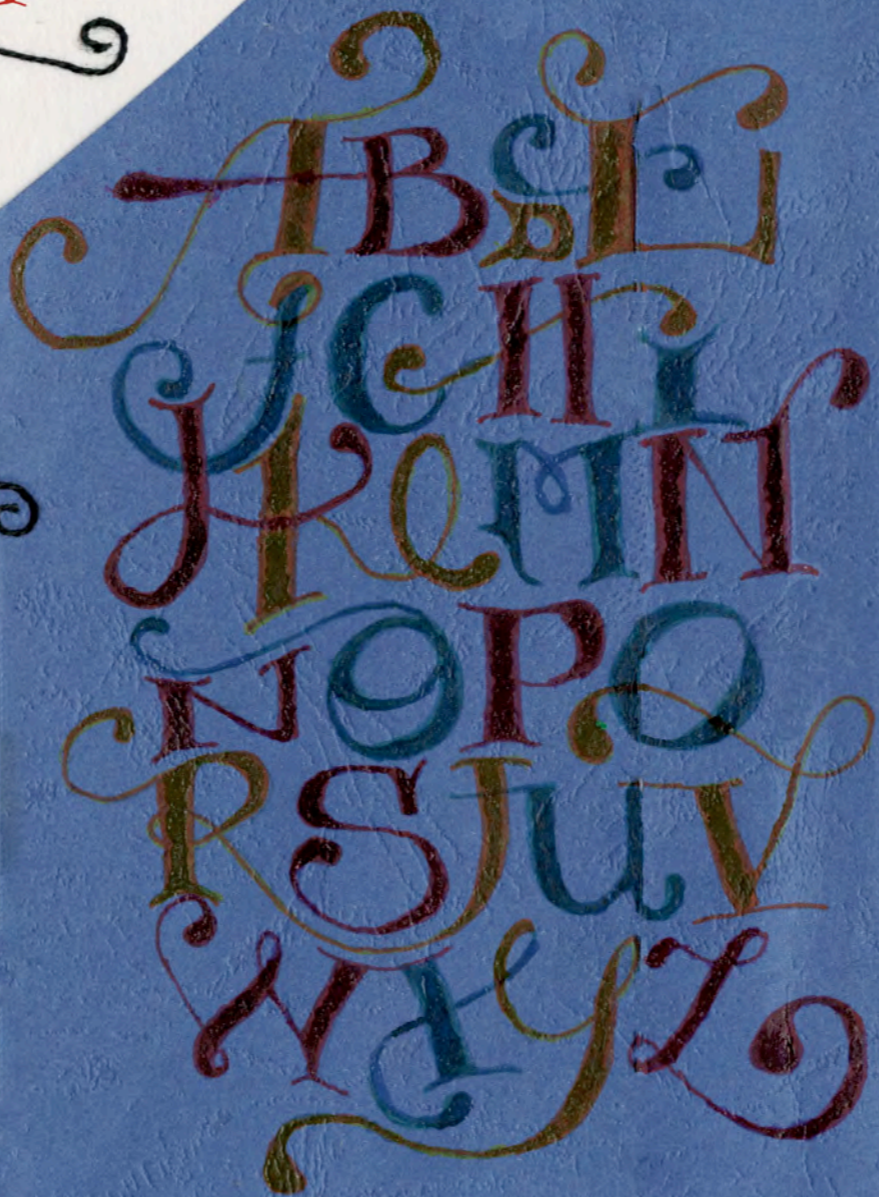 ABCDE
FGHI
JKLMN
ÑOPQ
RSTUV
WXYZ